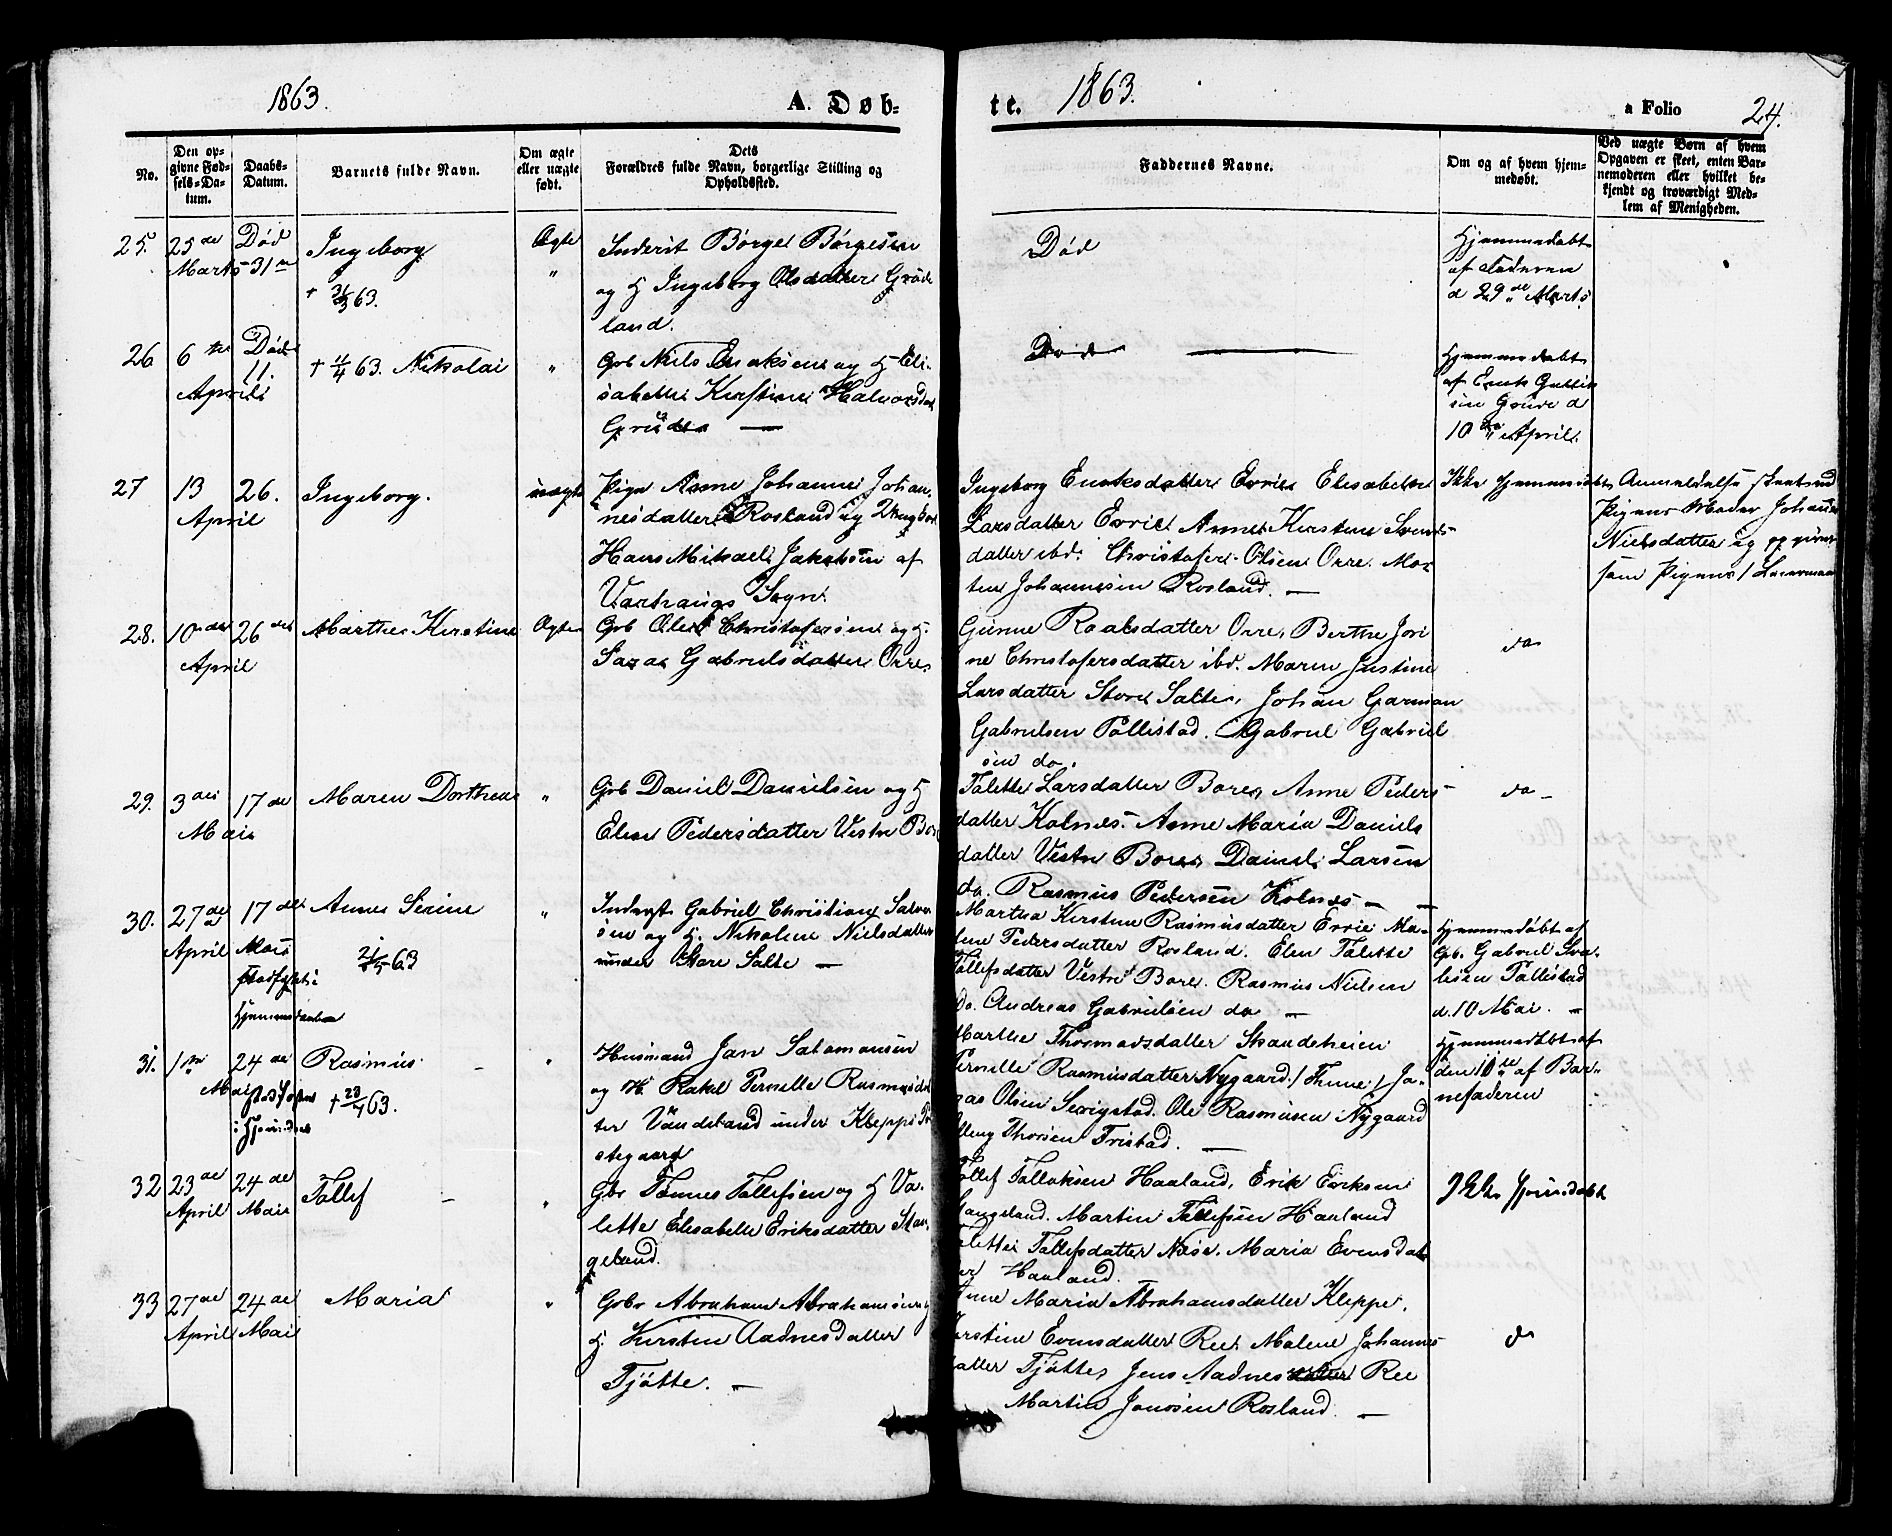 1863.
A. Døb-
te. 1863.
a Folio 24.
No.
Den op-
givne Fød-
sels-Da-
tum.
Daabs-
Datum.
Barnets fulde Navn.
Om ægte
eller uægte
født.
Dets
Forældres fulde Navn, borgerlige Stilling og
Opholdssted.
Faddernes Navne.
Om og af hvem hjem-
medøbt.
Ved uægte Børn af hvem
Opgaven er skeet, enten Bar-
nemoderen eller hvilket be-
kjendt og troværdigt Med-
lem af Menigheden.
25. 25de Marts
Død 31te
Ingeborg
+ 31/3 63.
Ægte
Inderst Børge Børgesen
og H Ingeborg Olsdatter Grøde
land.
Død
Hjemmedøbt
af Faderen
d 29de Marts
26 6te April
Død 11.
+ 11/4 63. Nikolai
"
Gb Niels Enoksen og H Eli-
sabette Kirstine Halvorsdat
Grude
Død
Hjemmedøbt
af Enok
d
10de April.
27 13 April
26.
Ingeborg.
uægte
Pige Anne Johanne Johan-
nesdatter Rosland og Ungkarl
Hans Mikael Jakobsen af
Varhaugs Sogn.
Ingeborg Enoksdatter Erviee Elisabette
Larsdatter Ervie Anne Kirstine Svends-
datter ibd. Christofer Olsen Orre. Mor-
ten Johannesen Rosland.
Ikke hjemmedøbt
Anmeldelse skeet ved
Pigens Moder Johanne
Nielsdatter og
som Pigens
28. 10de April
26de
Marthe Kirstine
Ægte
Gb Ole Christofersen og H.
Sara Gabrielsdatter Orre
Gunne Roalsdatter Orre, Berthe Jori
ne Christofersdatter ibd. Maren Justine
Larsdatter Store Salte, Johan Garman
Gabrielsen Tollistad. Gabriel Gabriel
sen do.
do
29. 3die Mai
17de
Maren Dorthea
"
Gb Daniel Danielsen og H
Elen Pedersdatter Vestre Bore
Talette Larsdatter Bore, Anne Peders-
datter Kolnes. Anne Maria Daniels
datter Vestre Bore, Daniel Larsen
do. Rasmus Pedersen Kolnes
do
30. 27de April
17de Mai
Stadfæstet
Hjemmedaaben
Anne Serine
21/5 63
"
Inderst Gabriel Christian
sen og H. Nikoline Nielsdatter
under Store Salte
Martha Kirstine Rasmusdatter Ervie Ma-
lene Pedersdatter Rosland. Elen Talette
Tollefsdatter Vestre Bore. Rasmus Nielsen
do. Andreas Gabrielsen do
Hjemmedøbt af
Gb. Gabriel
Tollistad
d. 10 Mai.
31. 1te Mai
24de
Rasmus
+ 23/ 63.
"
Husmand Jan Salomonsen
og H. Rakel Pernille Rasmusdat
ter Vandeland under Klepps Præ
stegaard
Marthe Thormodsdatter Skaudeheien
Pernille Rasmusdatter Nygaard / Thime / Jo-
nas Olsen Serigstad. Ole Rasmussen Nygaard
Thorsen Fristad.
Hjemmedøbt af
den 10de af Bar-
nefaderen
32 23de April
24de Mai
Tollef
"
Gbr Tønnes Tollefsen og H Va-
lette Elisabette Eriksdatter Stan-
geland.
Tollef Tollaksen Haaland, Erik Eriksen
Stangeland. Martin Tollefsen Haaland
Tollefsdatter Næse. Maria Evensdat
ter Haaland.
Ikke hjemmedøbt
33 27de April
24de Mai
Maria
"
Gbr Abraham Abrahamsen og
H. Kirsten Aadnesdatter
Tjøtte.
Anne Maria Abrahamsdatter Kleppe.
Kirstine Evensdatter Ree. Malene Johannes
datter Tjøtte, Jens Aadnes Ree
Martin Jonasen Rosland.
do